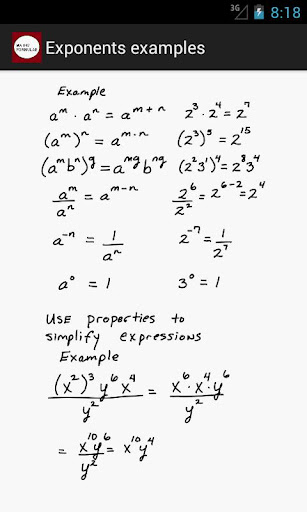 3G 8:18
MATHS
Exponents examples
Example
aᵐ · aⁿ = aᵐ⁺ⁿ 2³ · 2⁴ = 2⁷
(aᵐ)ⁿ = aᵐ·ⁿ (2³)⁵ = 2¹⁵
(aᵐbⁿ)^g = a^mg b^ng (2²3¹)⁴ = 2⁸3⁴
aᵐ/aⁿ = aᵐ⁻ⁿ 2⁶/2² = 2⁶⁻² = 2⁴
a⁻ⁿ = 1/aⁿ 2⁻⁷ = 1/2⁷
a⁰ = 1 3⁰ = 1
USE properties to
simplify expressions
Example
(x²)³y⁶x⁴/y² = x⁶·x⁴·y⁶/y²
= x¹⁰y⁶/y² = x¹⁰y⁴